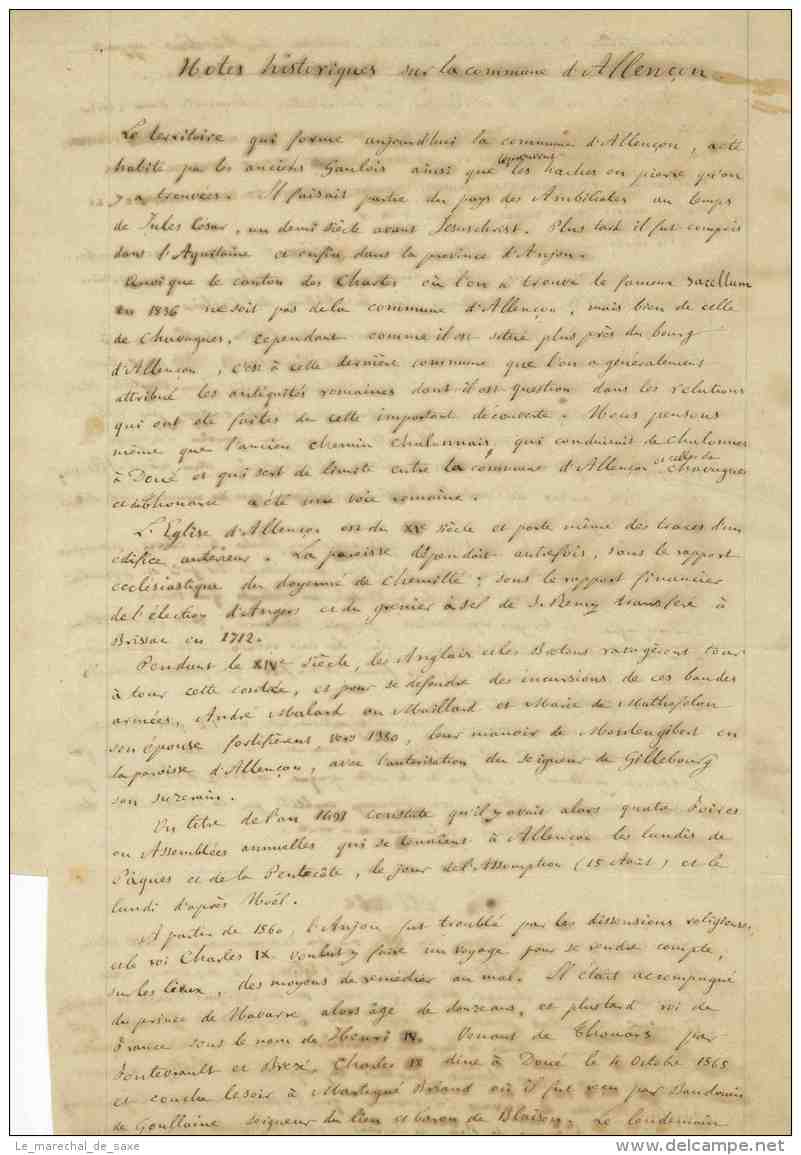 Notes historiques sur la commune d'Allençon.
Le territoire qui forme aujourdhui la commune d'Allençon, a été
habité par les anciens Gaulois ainsi que les haches en pierre qu'on
y a trouvées. Il faisait partie du pays des Ambiliates au temps
de Jules César, un demi siècle avant Jesuschrist. Plus tard il fut compris
dans l'Aquitaine et enfin dans la province d'Anjou.
Quoique le canton des Chastes où l'on a trouvé le fameux sacellum
en 1836 ne soit pas de la commune d'Allençon, mais bien de celle
de Chavagnes, cependant comme il est situé plus près du bourg
d'Allençon, c'est à cette dernière commune que l'on a généralement
attribué les antiquités romaines dont il est question dans les relations
qui ont été faites de cette important découverte. Nous pensons
même que l'ancien chemin Chalonnais, qui conduisait de Chalonnes
à Doué et qui sert de limite entre la commune d'Allençon et celles de Chavagnes
a été une voie romaine.
L'Eglise d'Allençon est du XVe siècle et porte même des traces d'un
édifice antérieur. La paroisse dépendait autrefois, sous le rapport
ecclésiastique du doyenné de Chemillé; sous le rapport financier
de l'élection d'Angers et du grenier à sel de S. Remy transféré à
Brissac en 1712.
Pendant le XIVe siècle, les Anglais et les Bretons ravagèrent tour
à tour cette contrée, et pour se défendre des incursions de ces bandes
armées, André Malard ou Maillard et Marie de Mathefelon
son épouse fortifièrent, vers 1380, leur manoir de Montengibert en
la paroisse d'Allençon, avec l'autorisation du seigneur de Gillebourg
son suzerain.
Un titre de l'an 1498 constate qu'il y avait alors quatre Foires
ou Assemblées annuelles qui se tenaient à Allençon les lundis de
Pâques et de la Pentecôte, le jour de l'Assomption (15 Août) et le
lundi d'après Noël.
A partir de 1560, l'Anjou fut troublé par les dissensions religieuses,
et le roi Charles IX voulut y faire un voyage pour se rendre compte,
sur les lieux, des moyens de remédier au mal. Il était accompagné
du prince de Navarre, alors âgé de douze ans, et plustard roi de
France sous le nom de Henri IV. Venant de Thouars par
Fontevrault et Brezé, Charles IX dîne à Doué le 4 Octobre 1565
et couche le soir à Martigné Briand où il fut reçu par Baudouin
de Goullaine seigneur du lieu et baron de Blaison. Le lendemain
Le_marechal_de_saxe
www.delcampe.net